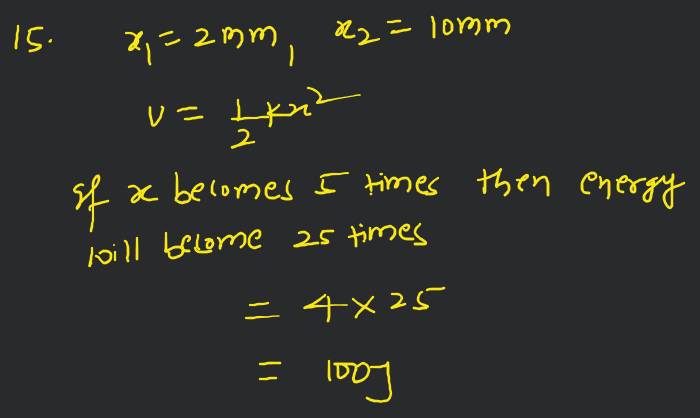 15. x₁ = 2mm, x₂ = 10mm
U = 1/2 kx²
If x becomes 5 times then energy
will become 25 times
= 4 × 25
= 100J